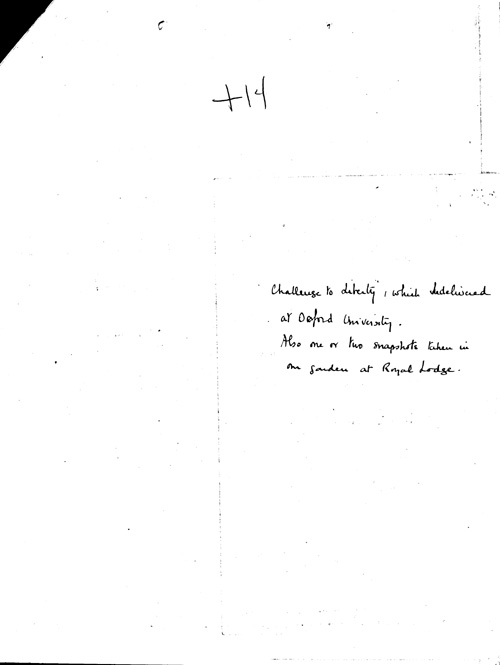 +14
Challenge to Liberty", which he delivered
at Oxford University.
Also one or two snapshots taken in
our garden at Royal Lodge.